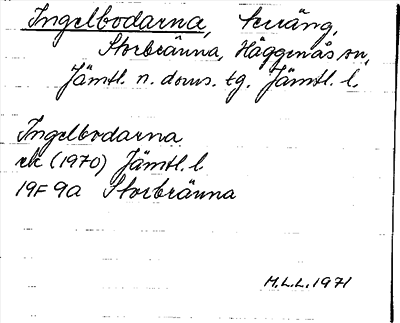 Ingelbodarna, terräng,
Storbränna, Häggenås sn,
Jämtl. n. doms. tg. Jämtl. l.
Ingelbodarna
ek (1970) Jämtl. l
19F 9a Storbränna
M.L.L. 1971